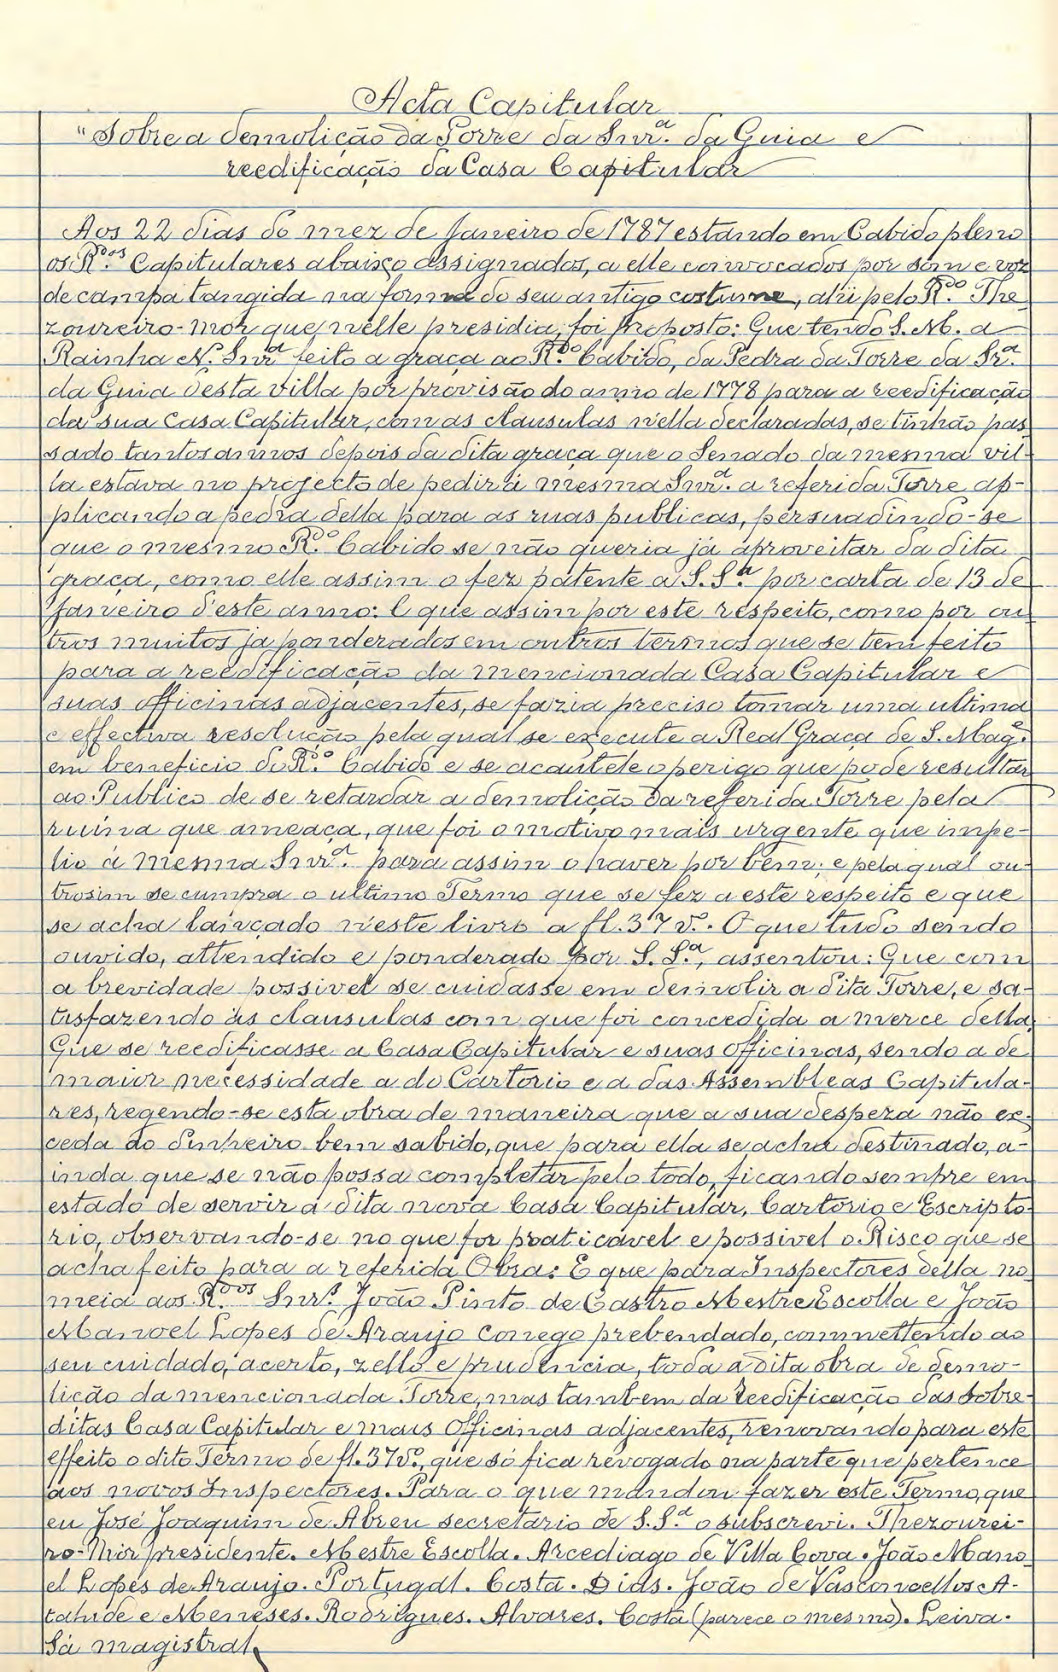 Acta Capitular
"Sobre a demolição da Torre da Snrª. da Guia e
reedificação da Casa Capitular
Aos 22 dias do mez de Janeiro de 1787 estando em Cabido pleno
os R.dos Capitulares abaixo assignados, a elle convocados por som e voz
de campa tangida na forma do seu antigo costume, ahi pelo R.do The-
zoureiro-mór que n'elle presidia, foi proposto: Que tendo S. M. a
Rainha N. Snrª feito a graça ao R.do Cabido, da Pedra da Torre da Srª.
da Guia desta villa por provisão do anno de 1778 para a reedificação
da sua Casa Capitular, com as clausulas n'ella declaradas, se tinhão pas
sado tantos annos depois da dita graça que o Senado da mesma vil-
la estava no projecto de pedir á mesma Snrª. a referida Torre ap-
plicando a pedra della para as ruas publicas, persuadindo-se
que o mesmo R.do Cabido se não queria já aproveitar da dita
graça, como elle assim o fez patente a S. Sª. por carta de 13 de
Janeiro d'este anno: E que assim por este respeito, como por ou
tros muitos ja ponderados em outros termos que se tem feito
para a reedificação da mencionada Casa Capitular e
suas officinas adjacentes, se fazia preciso tomar uma ultima
e effectiva resolução pela qual se execute a Real Graça de S. Mag.e
em beneficio do R.do Cabido e se acautele o perigo que pode resultar
ao Publico de se retardar a demolição da referida Torre pela
ruina que ameaça, que foi o motivo mais urgente que impe-
lio á mesma Snrª. para assim o haver por bem; e pela qual ou-
trosim se cumpra o ultimo Termo que se fez a este respeito e que
se acha lançado n'este livro a fl. 37 vº. O que tudo sendo
ouvido, attendido e ponderado por S. Sª., assentou: Que com
a brevidade possivel se cuidasse em demolir a dita Torre, e sa-
tisfazendo ás clausulas com que foi concedida a merce della,
Que se reedificasse a Casa Capitular e suas officinas, sendo a de
maior necessidade a do Cartorio e a das Assembleas Capitula-
res, regendo-se esta obra de maneira que a sua despeza não ex-
ceda ao dinheiro bem sabido, que para ella se acha destinado, a-
inda que se não possa completar pelo todo, ficando sempre em
estado de servir á dita nova Casa Capitular, Cartorio e Escripto-
rio, observando-se no que for praticavel e possivel o Risco que se
acha feito para a referida Obra: E que para Inspectores della no-
meia aos R.dos Snrs. João Pinto de Castro Mestre Escolla e João
Manoel Lopes de Araujo Conego prebendado, commettendo ao
seu cuidado, acerto, zello e prudencia, toda a dita obra de demo-
lição da mencionada Torre, mas tambem da reedificação das sobre-
ditas Casa Capitular e mais Officinas adjacentes, renovando para este
effeito o dito Termo de fl. 37 vº., que só fica revogado na parte que pertence
aos novos Inspectores. Para o que mandou fazer este Termo, que
eu José Joaquim de Abreu secretario de S. Sª. o subscrevi. Thezourei-
ro-Mór presidente. Mestre Escolla. Arcediago de Villa Cova. João Mano
el Lopes de Araujo. Portugal. Costa. Dias. João de Vasconcellos A-
tahide e Meneses. Rodrigues. Alvares. Costa (parece o mesmo). Leiva.
Sá magistral.